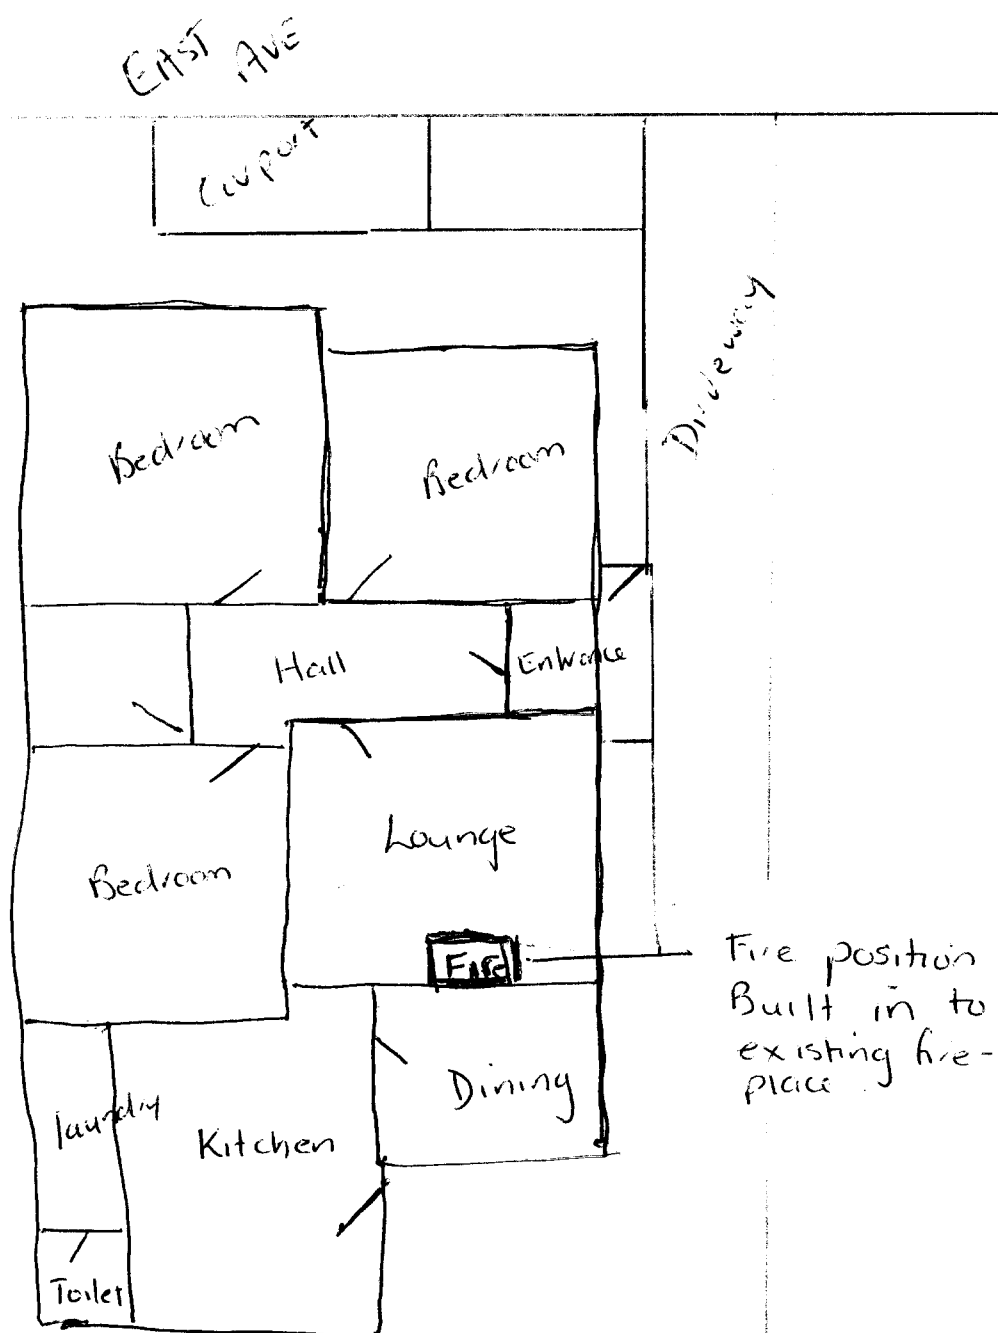 EAST AVE
Carport
Driveway
Bedroom
Bedroom
Hall
Entrance
Lounge
Bedroom
Fire
Fire position
Built in to
existing fire-
place.
Dining
laundry
Kitchen
Toilet